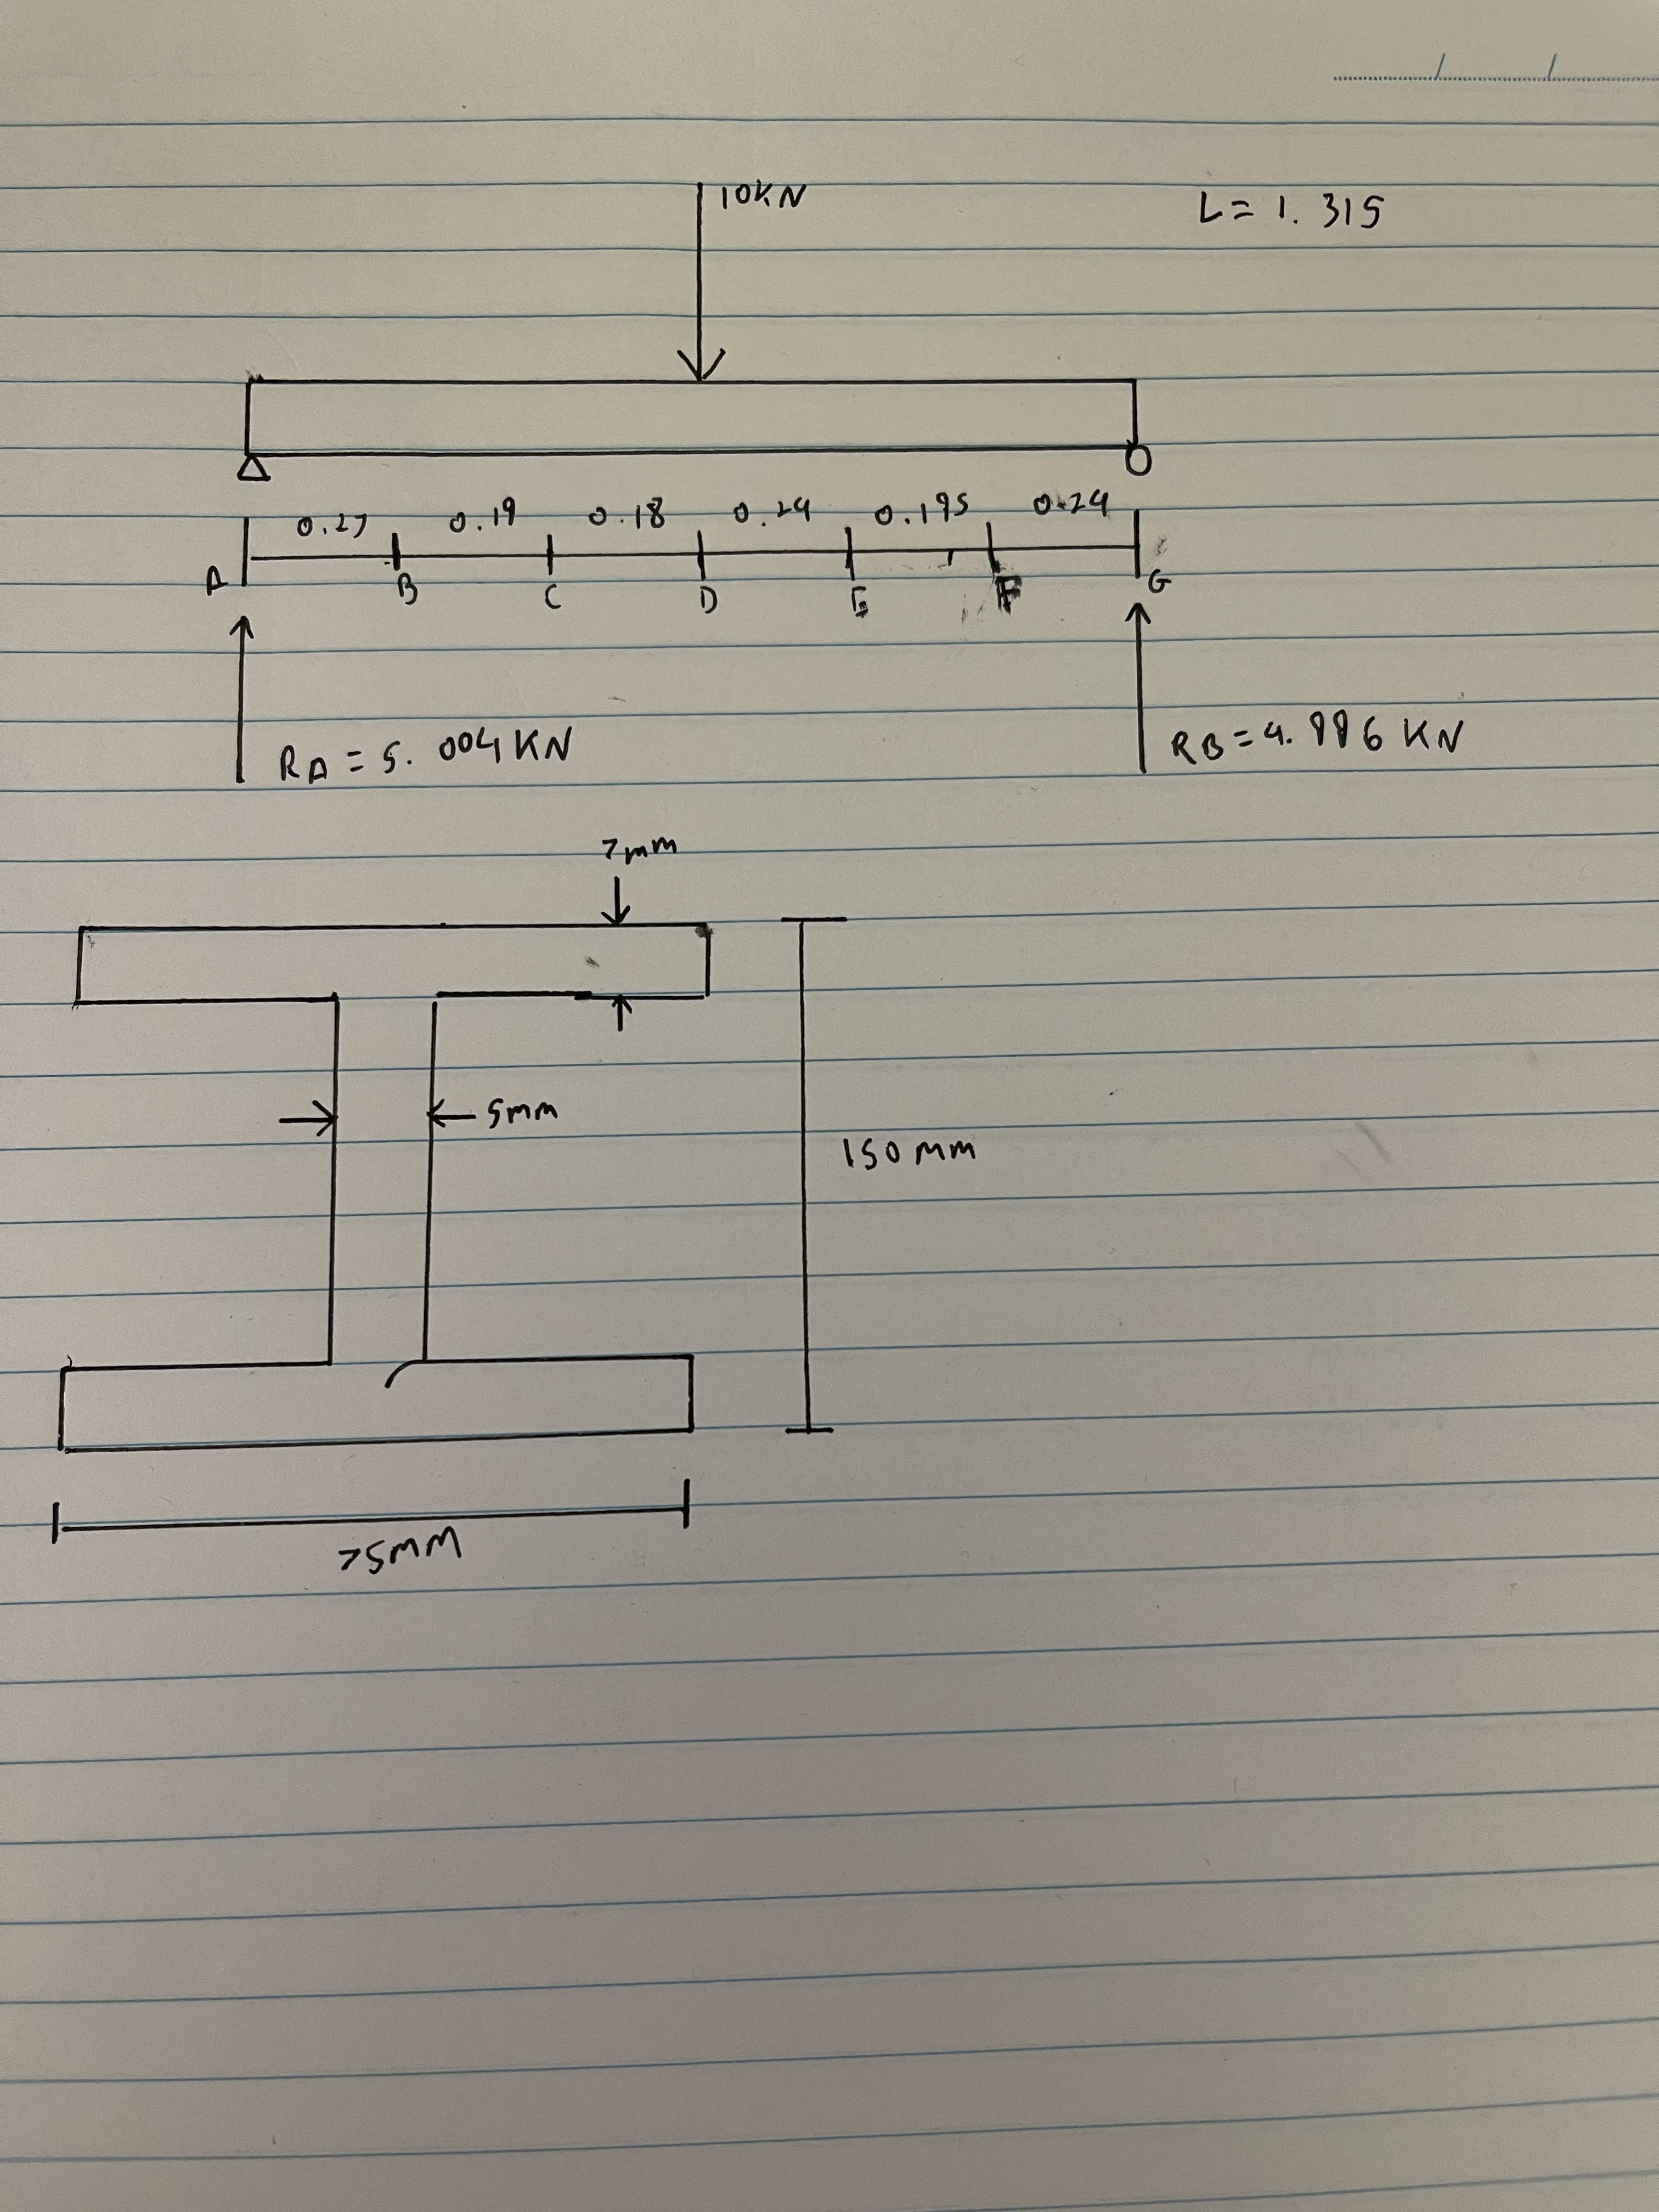 10KN
L= 1.315
0.27 0.19 0.18 0.24 0.195 0.24
A B C D E F G
RA = 5.004 KN RB = 4.996 KN
7mm
5mm
150 mm
75mm